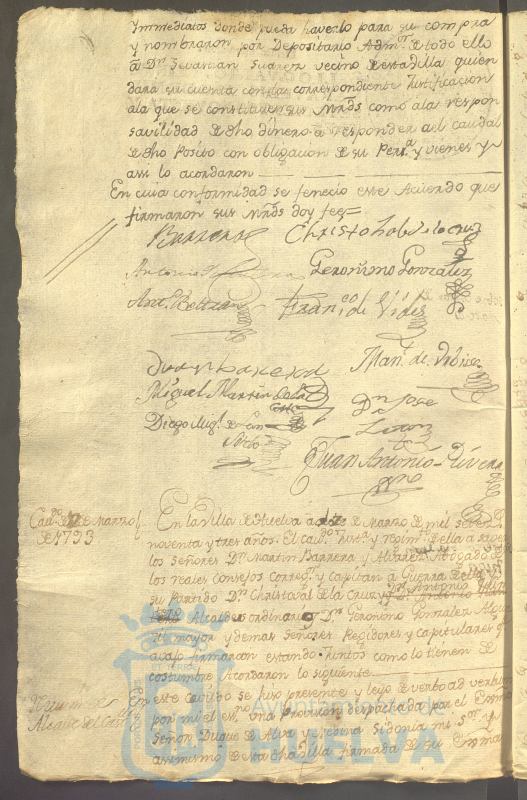 Ymmediatos donde pueda haverlo para su compra
y nombraron por Depositario Adm.or de todo ello
a Dn. Sevastian Suarez vecino de esta villa quien
dara su cuenta con la correspondiente Justificacion
ala que se constituien sus Mrds como ala respon
savilidad de dho dinero a responder a el caudal
de dho Posito con obligacion de su Pers.a y vienes y
assi lo acordaron
En cuia conformidad se fenecio este Acuerdo que
firmaron sus Mrds doy fee=
Barrera Christobal de la Cruz
Antonio Geronimo Gonzalez
Ant.o Beltran Fran.co de Vides
Juan Barrera Man.l de
Miguel Martin
Diego Mig.l de Dn Jose
Pinto
Juan Antonio Rivera
Cav.do 12 de Marzo
de 1793
En la Villa de Huelva a doze de Marzo de mil setec.s
noventa y tres años. El cav.do Just.a y regim.to de ella a saver
los señores Dn. Martin Barrera y Alvarez Abogado de
los reales Consejos correg.or y capitan a Guerra de ella y
su Partido Dn. Christoval de la Cruz y Dn. Antonio
Alcalde ordinario Dn. Geronimo Gonzalez Algua
cil mayor y demas Señores Regidores y capitulares q.e
avajo firmaran estando Juntos como lo tienen de
costumbre Acordaron lo siguiente
Alcayde del Cast.o
En este cavildo se hizo presente y leyo de verbo ad verbum
por mi el es.no una Provision despachada por el Exmo
Señor Duque de Alva y Medina Sidonia mi S.or y
asimismo de esta dha villa firmada de su Exma
ET TERRAE
Ayuntamiento de
HUELVA